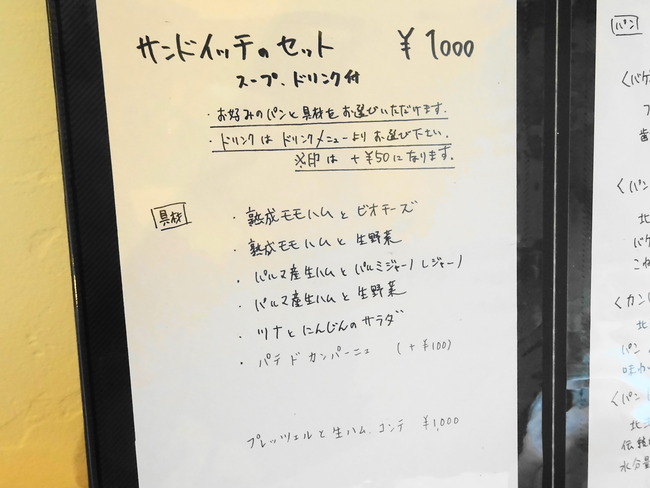 サンドイッチのセット ¥1000
スープ、ドリンク付
・お好みのパンと具材をお選びいただけます。
・ドリンクはドリンクメニューよりお選び下さい。
※印は+¥50になります。
具材
・熟成モモハムとビオチーズ
・熟成モモハムと生野菜
・パルマ産生ハムとパルミジャーノレジャーノ
・パルマ産生ハムと生野菜
・ツナとにんじんのサラダ
・パテドカンパーニュ (+¥100)
プレッツェルと生ハム、コンテ ¥1,000
パン
〈バゲ
歯
〈パン
北
バゲ
こね
〈カン
北
パン
味か
〈パン
北海
伝統
水分量